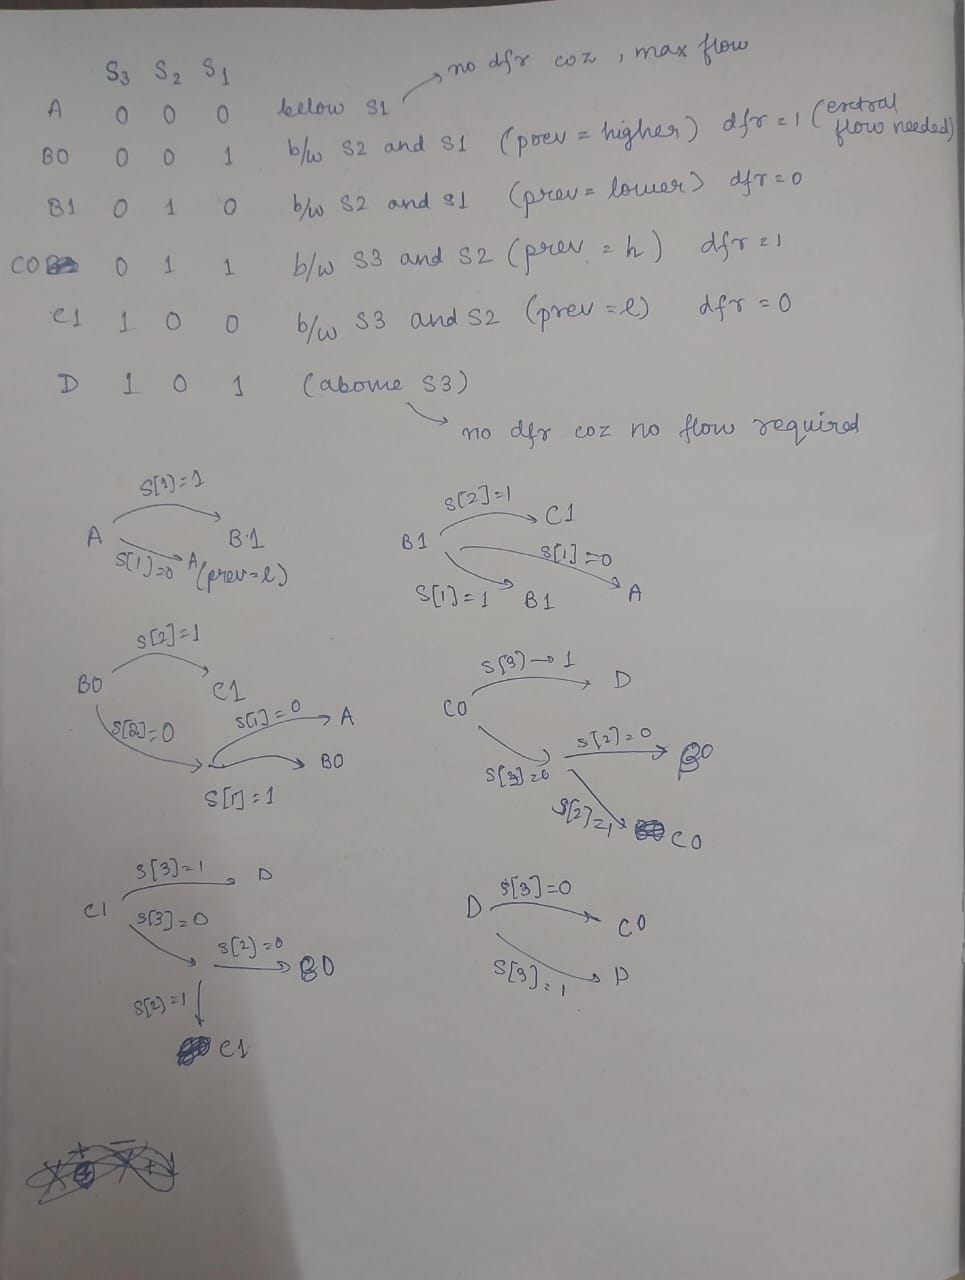 S3 S2 S1
no dfr coz, max flow
A 0 0 0 below S1
B0 0 0 1 b/w S2 and S1 (prev = higher) dfr = 1 (
flow needed)
B1 0 1 0 b/w S2 and S1 (prev = lower) dfr = 0
C0 0 1 1 b/w S3 and S2 (prev = h) dfr = 1
C1 1 0 0 b/w S3 and S2 (prev = l) dfr = 0
D 1 0 1 (above S3)
no dfr coz no flow required
S[1]=1
A B1
S[1]=0 A (prev=l)
S[2]=1
B1 C1
S[1]=0
A
S[1]=1 B1
S[2]=1
B0 C1
S[2]=0 S[1]=0 A
B0
S[1]=1
S[3]→1
C0 D
S[3]=0 S[2]=0 B0
S[2]=1 C0
S[3]=1 D
C1
S[3]=0
S[2]=0 B0
S[2]=1
C1
S[3]=0
D C0
S[3]=1 D